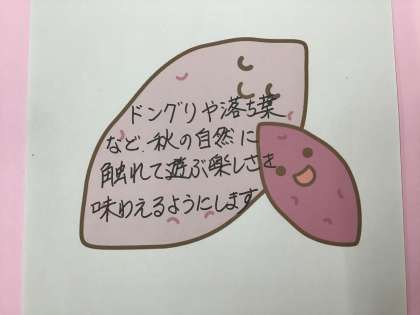 ドングリや落ち葉
など、秋の自然に
触れて遊ぶ楽しさを
味わえるようにします